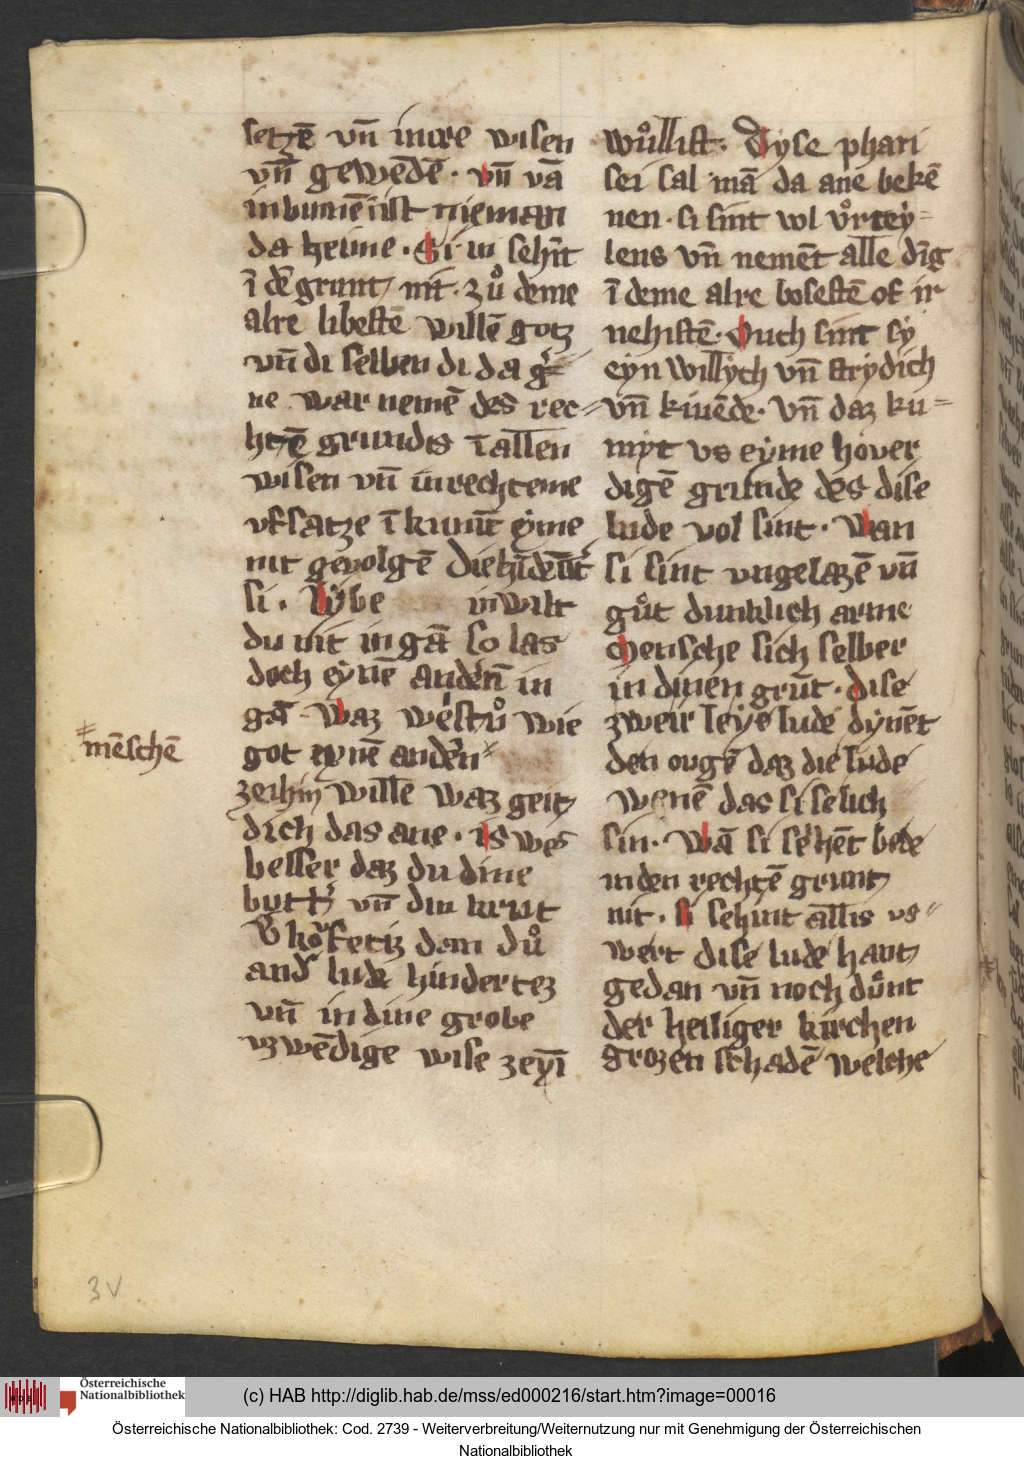 setzē vn̄ in ire wisen
vn̄ gewēdē · vn̄ vā
in bunnē ist nieman
da heime · Si in sehīt
ī dē grunt nit · zuͦ deme
alre libestē willē gotz
vn̄ di selben di da
ne war nemē des rec=
htē grundis ī allen
wisen vn̄ in rechteme
vfsatze ī kunnt eyme
nit gevolgē
si · lybe in wilt
du nit in gā so las
doch eynē anderē in
gā · Waz westuͦ wie
mēschē
got eynē anderē
zeihin wille waz geit
dich das ane · is wes
besser daz du dine
vn̄ din krut
dan duͦ
lude hindertez
vn̄ in dine grobe
vzwēdige wise zeyī
wuͦllist · Dyse phari
sei sal mā da ane bekē
nen · si sint vol vͦrtey=
lens vn̄ nemēt alle dīg
ī deme alre bosestē of ir
nehistē · Ouch sint sy
eyn willych vn̄ strydich
vn̄ kiuēde · vn̄ daz ku=
myt vs eyme hover
digē grunde des dise
lude vol sint · Wan
si sint vngelazē vn̄
guͦt dunklich arme
Mensche sich selber
in dinen grūt · dise
zweir leye lude dynēt
den ougē daz die lude
wenē das si selich
sin · Wā si sehēt bede
in den rechtē grunt
nit · si sehint allis vs=
wert dise lude hant
gedan vn̄ noch duͦnt
der heiliger kirchen
grozen schadē welche
3v
Österreichische
Nationalbibliothek
(c) HAB http://diglib.hab.de/mss/ed000216/start.htm?image=00016
Österreichische Nationalbibliothek: Cod. 2739 - Weiterverbreitung/Weiternutzung nur mit Genehmigung der Österreichischen
Nationalbibliothek